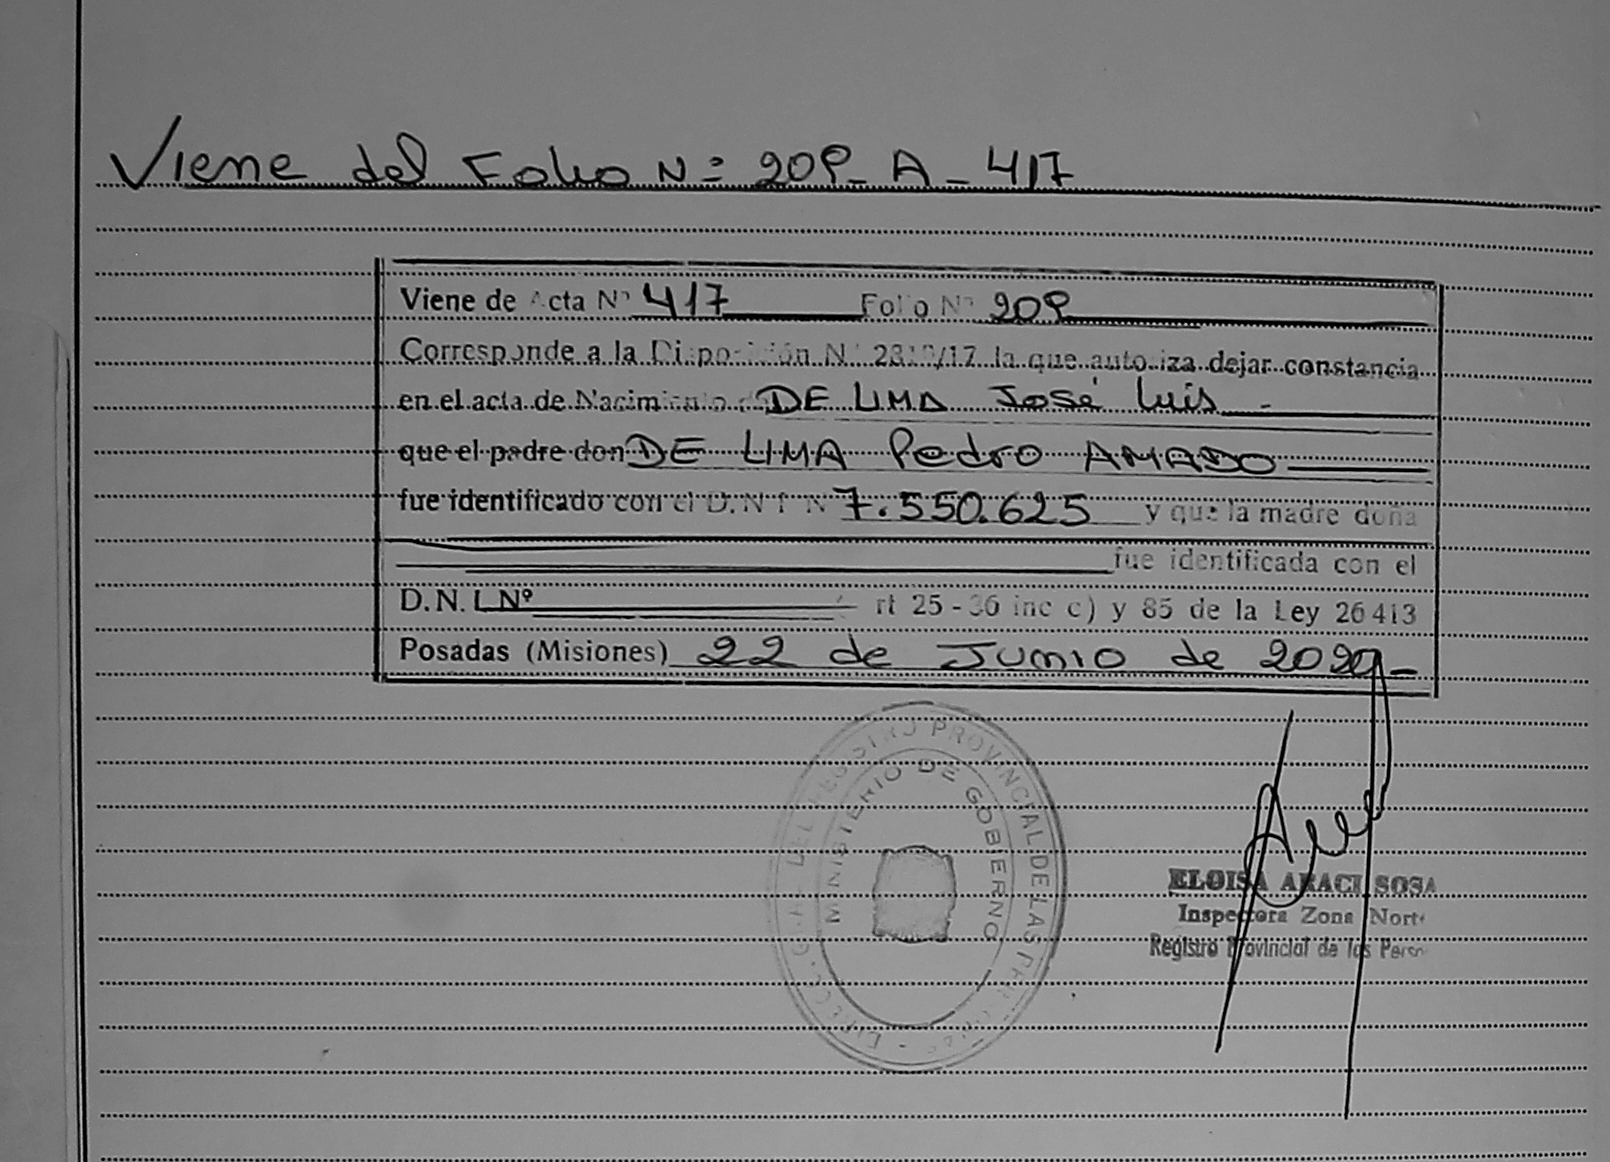 Viene del Folio Nº 209_ A _ 417
Viene de Acta Nº 417 Folio Nº 209
Corresponde a la Disposición Nº /17 la que autoriza dejar constancia
en el acta de Nacimiento de DE LIMA José Luis -
que el padre don DE LIMA Pedro AMADO
fue identificado con el D.N.I Nº 7.550.625 y que la madre doña
fue identificada con el
D.N.I Nº Art 25 - 36 inc c) y 85 de la Ley 26413
Posadas (Misiones) 22 de Junio de 2020 -
REGISTRO PROVINCIAL DE LAS PERSONAS
MINISTERIO DE GOBIERNO
ELOISA ARACI SOSA
Inspectora Zona Norte
Registro Provincial de las Person